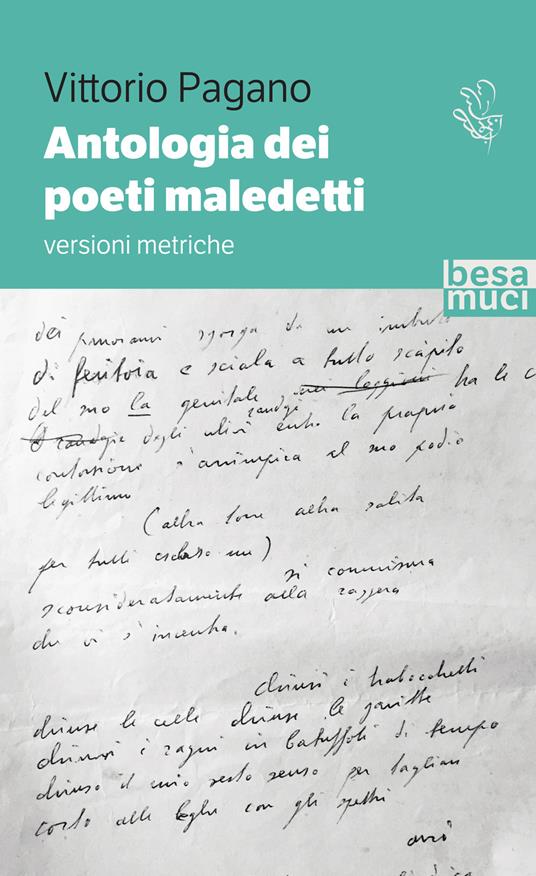 Vittorio Pagano
Antologia dei
poeti maledetti
versioni metriche
besa
muci
dei panorami sgorga da un imbuto
di feritoia e sciala a tutto scàpito
del suo la genitale ha le c
randagi
degli ulivi entro la propria
contorsione s'arrampica al suo podio
legittimo
(altra torre altra salita
per tutti escluso me)
si commisura
sconsideratamente alla zazzera
che vi s'incentra.
chiusi i trabocchetti
chiuse le celle chiuse le garitte
chiusi i ragni in batuffoli di tempo
chiuso il mio sesto senso per tagliar
corto alle beghe con gli spettri